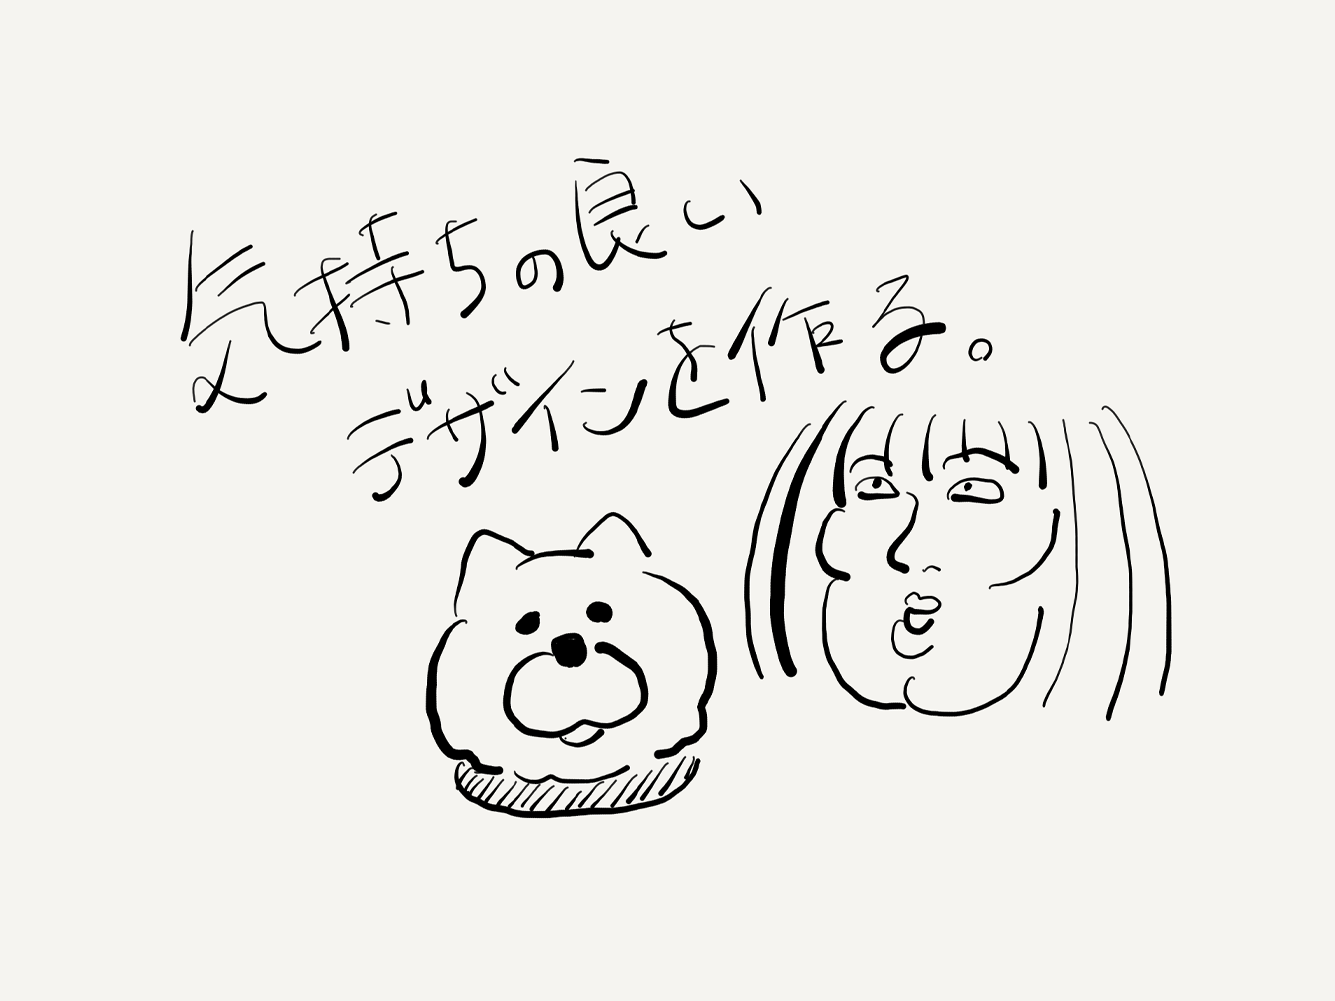 気持ちの良い
デザインを作る。